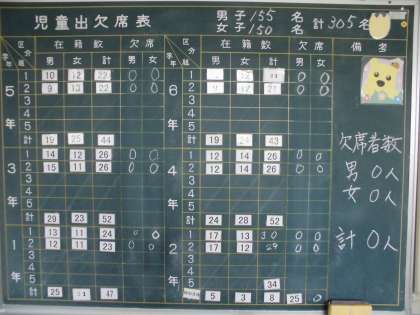 児童出欠席表 男子155名 計305名
女子150名
学年 区分 組 在籍数 欠席 学年 区分 組 在籍数 欠席 備考
男 女 計 男 女 男 女 計 男 女
5年 1 10 12 22 0 0 6年 1 0 0
2 9 13 22 0 0 2 0 0
3 3
4 4
5 5
計 19 25 44 計 19 24 43
3年 1 14 12 26 0 0 4年 1 12 14 26 0 0
2 15 11 26 0 0 2 12 14 26 0 0
3 3
4 4
5 5
計 29 23 52 計 24 28 52
1年 1 12 12 24 0 0 2年 1 17 13 30 0 0
2 13 11 23 0 0 2 17 12 29 0 0
3 3
4 4
5 5 34
計 25 47 5 3 8 25 0
欠席者数
男 0人
女 0人
計 0人